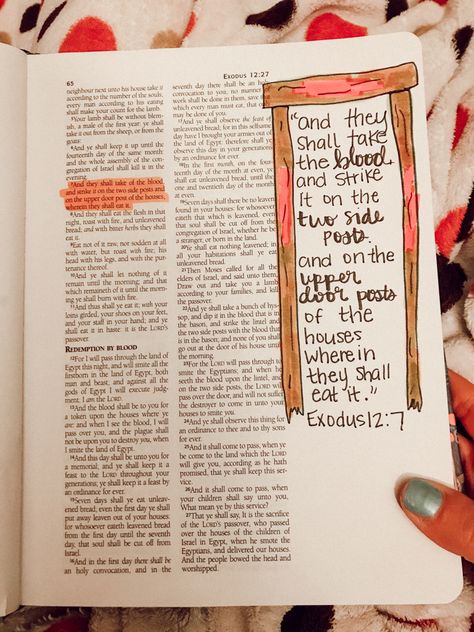 65
EXODUS 12:27
neighbour next unto his house take it
according to the number of the souls;
every man according to his eating
shall make your count for the lamb.
5Your lamb shall be without blem-
ish, a male of the first year: ye shall
take it out from the sheep, or from the
goats:
6And ye shall keep it up until the
fourteenth day of the same month:
and the whole assembly of the con-
gregation of Israel shall kill it in the
evening.
7And they shall take of the blood,
and strike it on the two side posts and
on the upper door post of the houses,
wherein they shall eat it.
8And they shall eat the flesh in that
night, roast with fire, and unleavened
bread; and with bitter herbs they shall
eat it.
9Eat not of it raw, nor sodden at all
with water, but roast with fire; his
head with his legs, and with the pur-
tenance thereof.
10And ye shall let nothing of it
remain until the morning; and that
which remaineth of it until the morn-
ing ye shall burn with fire.
11And thus shall ye eat it; with your
loins girded, your shoes on your feet,
and your staff in your hand; and ye
shall eat it in haste: it is the LORD'S
passover.
REDEMPTION BY BLOOD
12For I will pass through the land of
Egypt this night, and will smite all the
firstborn in the land of Egypt, both
man and beast; and against all the
gods of Egypt I will execute judg-
ment: I am the LORD.
13And the blood shall be to you for
a token upon the houses where ye
are: and when I see the blood, I will
pass over you, and the plague shall
not be upon you to destroy you, when
I smite the land of Egypt.
14And this day shall be unto you for
a memorial; and ye shall keep it a
feast to the LORD throughout your
generations; ye shall keep it a feast by
an ordinance for ever.
15Seven days shall ye eat unleav-
ened bread; even the first day ye shall
put away leaven out of your houses:
for whosoever eateth leavened bread
from the first day until the seventh
day, that soul shall be cut off from
Israel.
16And in the first day there shall be
an holy convocation, and in the
seventh day there shall be an holy
convocation to you; no manner of
work shall be done in them, save that
which every man must eat, that only
may be done of you.
17And ye shall observe the feast of
unleavened bread; for in this selfsame
day have I brought your armies out of
the land of Egypt: therefore shall ye
observe this day in your generations
by an ordinance for ever.
18In the first month, on the fourteenth
day of the month at even, ye
shall eat unleavened bread, until the
one and twentieth day of the month
at even.
19Seven days shall there be no leaven
found in your houses: for whosoever
eateth that which is leavened, even
that soul shall be cut off from the
congregation of Israel, whether he be
a stranger, or born in the land.
20Ye shall eat nothing leavened; in
all your habitations shall ye eat
unleavened bread.
21Then Moses called for all the
elders of Israel, and said unto them,
Draw out and take you a lamb
according to your families, and kill
the passover.
22And ye shall take a bunch of hys-
sop, and dip it in the blood that is in
the bason, and strike the lintel and
the two side posts with the blood that
is in the bason; and none of you shall
go out at the door of his house until
the morning.
23For the LORD will pass through to
smite the Egyptians; and when he
seeth the blood upon the lintel, and
on the two side posts, the LORD will
pass over the door, and will not suffer
the destroyer to come in unto your
houses to smite you.
24And ye shall observe this thing for
an ordinance to thee and to thy sons
for ever.
25And it shall come to pass, when ye
be come to the land which the LORD
will give you, according as he hath
promised, that ye shall keep this ser-
vice.
26And it shall come to pass, when
your children shall say unto you,
What mean ye by this service?
27That ye shall say, It is the sacrifice
of the LORD'S passover, who passed
over the houses of the children of
Israel in Egypt, when he smote the
Egyptians, and delivered our houses.
And the people bowed the head and
worshipped.
"and they
shall take
the blood
and strike
it on the
two side
posts.
and on the
upper
door posts
of the
houses
wherein
they shall
eat it."
Exodus 12:7